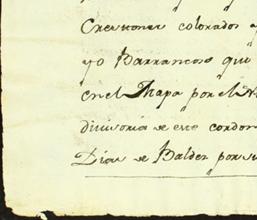 Crestones colorados
yo Barrancoso qui
en el Mapa por el N
divisoria de este cordon
Dias de Balder por su